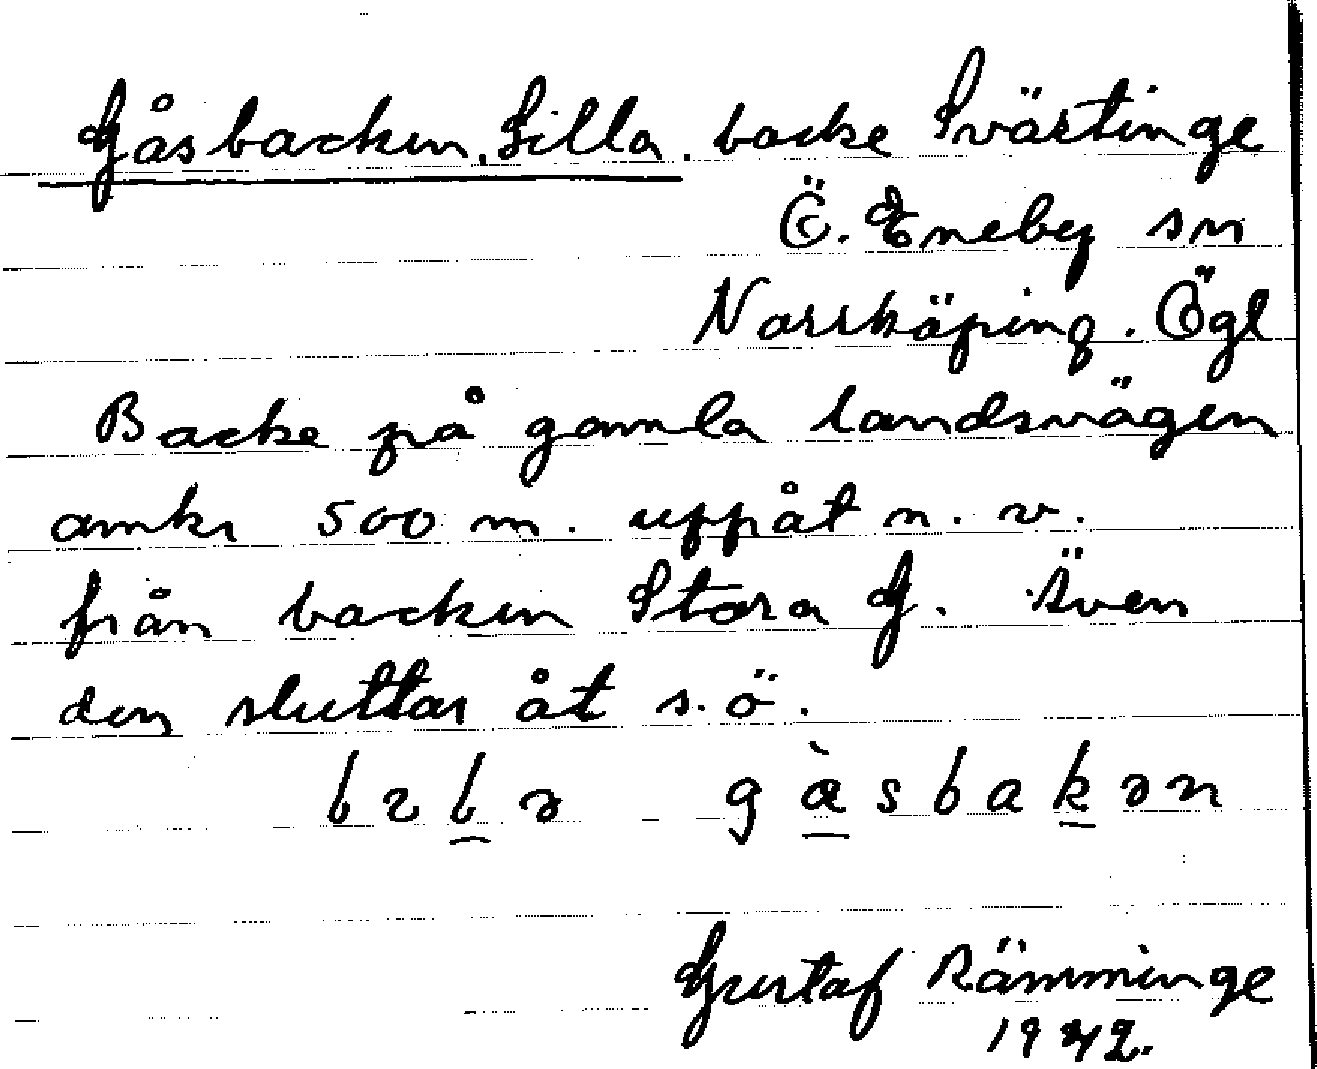 Gåsbacken, Lilla. backe Svärtinge
Ö. Eneby sn
Norrköping. Ögl
Backe på gamla landsvägen
omkr 500 m. uppåt n. v.
från backen Stora G. Även
den sluttar åt s. ö.
gàsbakən
Gustaf Rämminge
1942.